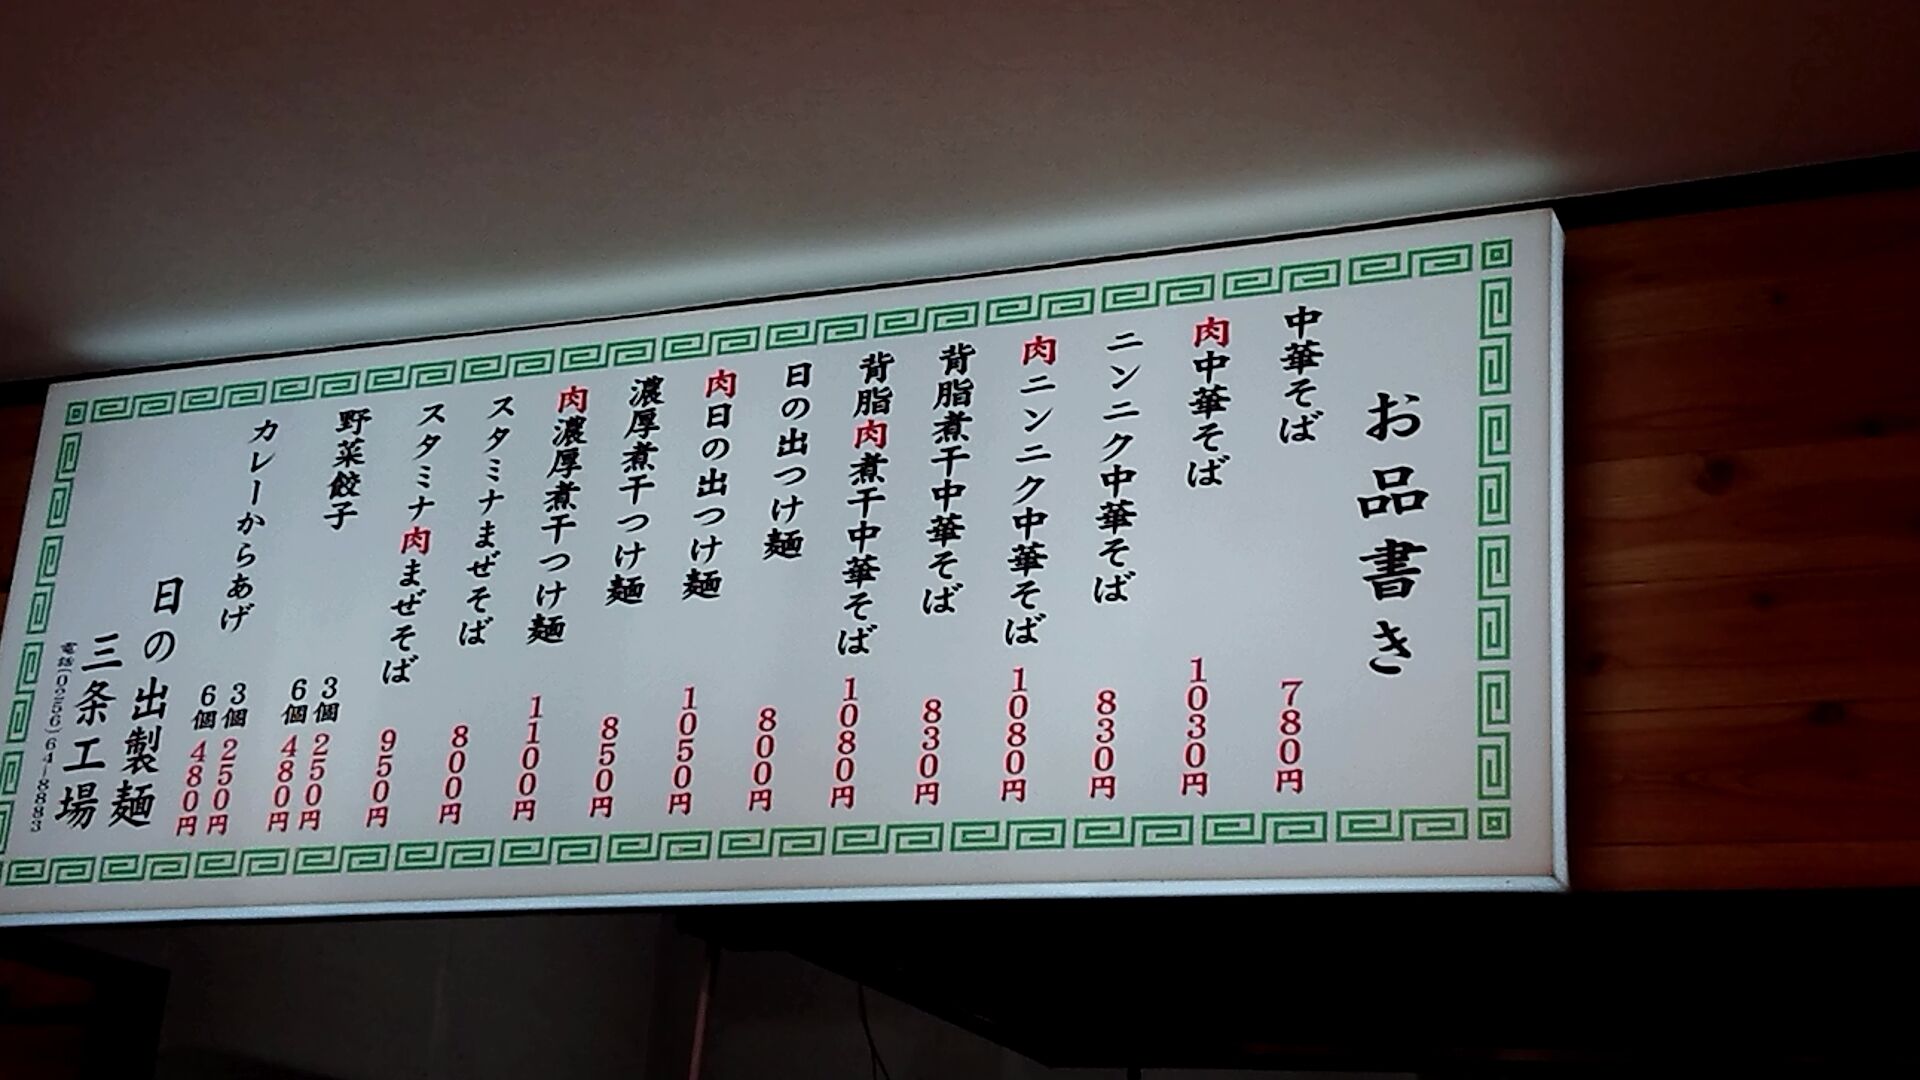 お品書き
中華そば 780円
肉中華そば 1030円
ニンニク中華そば 830円
肉ニンニク中華そば 1080円
背脂煮干中華そば 830円
背脂肉煮干中華そば 1080円
日の出つけ麺 800円
肉日の出つけ麺 1050円
濃厚煮干つけ麺 850円
肉濃厚煮干つけ麺 1100円
スタミナまぜそば 800円
スタミナ肉まぜそば 950円
野菜餃子 3個 250円
6個 480円
カレーからあげ 3個 250円
6個 480円
日の出製麺
三条工場
電話(0256)64-8883